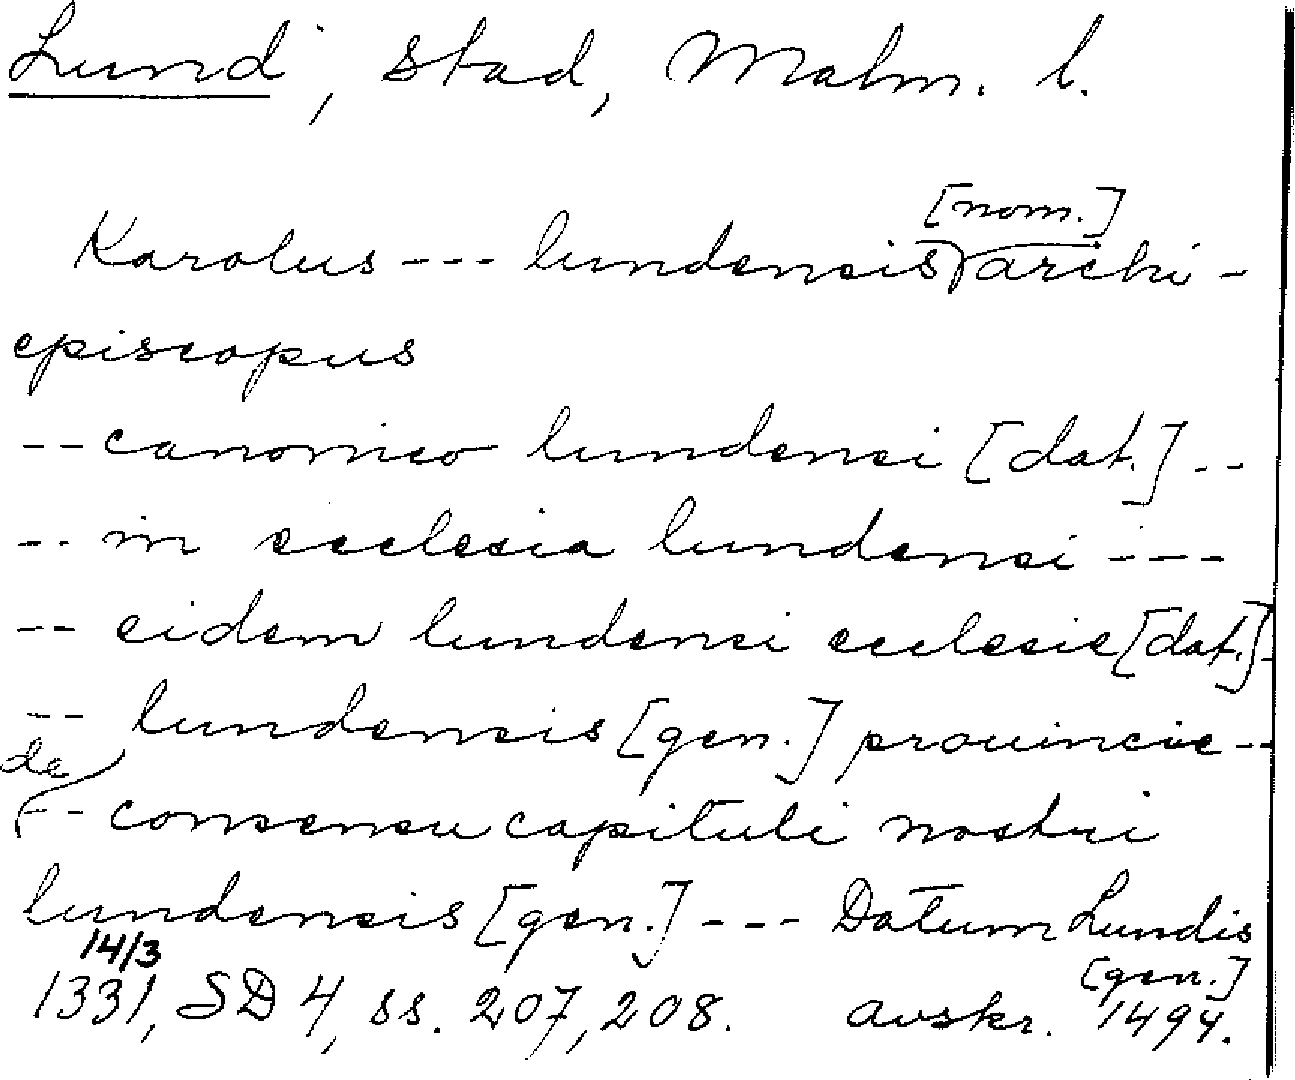 Lund, stad, Malm. l.
[nom.]
Karolus --- lundensis archi-
episcopus
-- canonico lundensi [dat.] --
-- in ecclesia lundensi ---
-- eidem lundensi ecclesie [dat.]
-- lundensis [gen.] prouincie --
de
-- consensu capituli nostri
lundensis [gen.] --- Datum Lundis
14/3 [gen.]
1331, SD 4, ss. 207, 208. avskr. 1494.